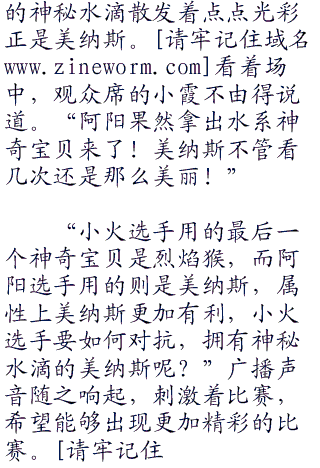 的神秘水滴散发着点点光彩
正是美纳斯。[请牢记住域名
www.zineworm.com]看着场
中，观众席的小霞不由得说
道。“阿阳果然拿出水系神
奇宝贝来了！美纳斯不管看
几次还是那么美丽！”
“小火选手用的最后一
个神奇宝贝是烈焰猴，而阿
阳选手用的则是美纳斯，属
性上美纳斯更加有利，小火
选手要如何对抗，拥有神秘
水滴的美纳斯呢？”广播声
音随之响起，刺激着比赛，
希望能够出现更加精彩的比
赛。[请牢记住